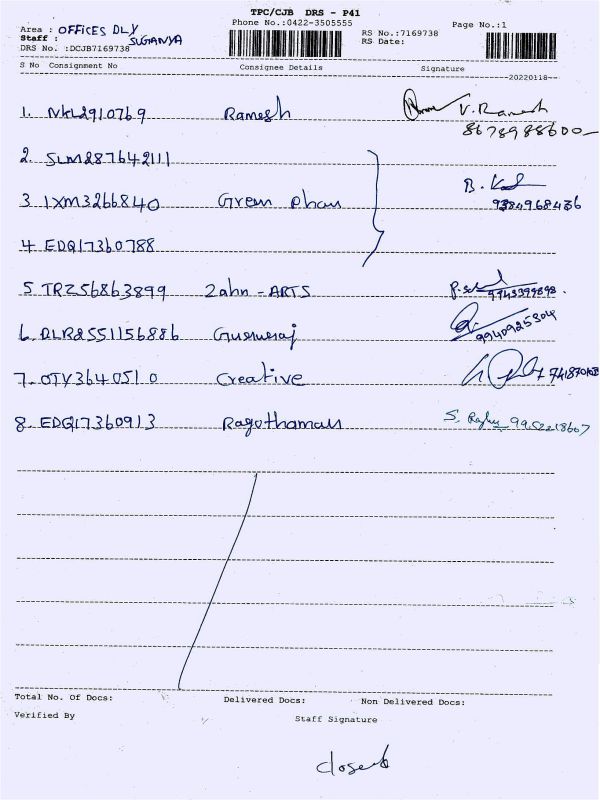 TPC/CJB DRS - P41
Phone No.:0422-3505555
Page No.:1
Area : OFFICES DLY
Staff : SUGANYA
RS No.:7169738
RS Date:
DRS No. :DCJB7169738
S No Consignment No Consignee Details Signature
20220118
1. NKL2910769 Ramesh V. Ramesh
8678988600
2. SLM287642111
3 IXM3266840 Green B.
9384968436
4. EDQ17360788
5. TRZ56863899 Zahn - ARTS
9943399898
6. DLR2551156886 Gururaj 9940925304
7. OTY3640510 Creative
8. EDQ17360913 Ragothaman S.
Total No. Of Docs: Delivered Docs: Non Delivered Docs:
Verified By Staff Signature
closed